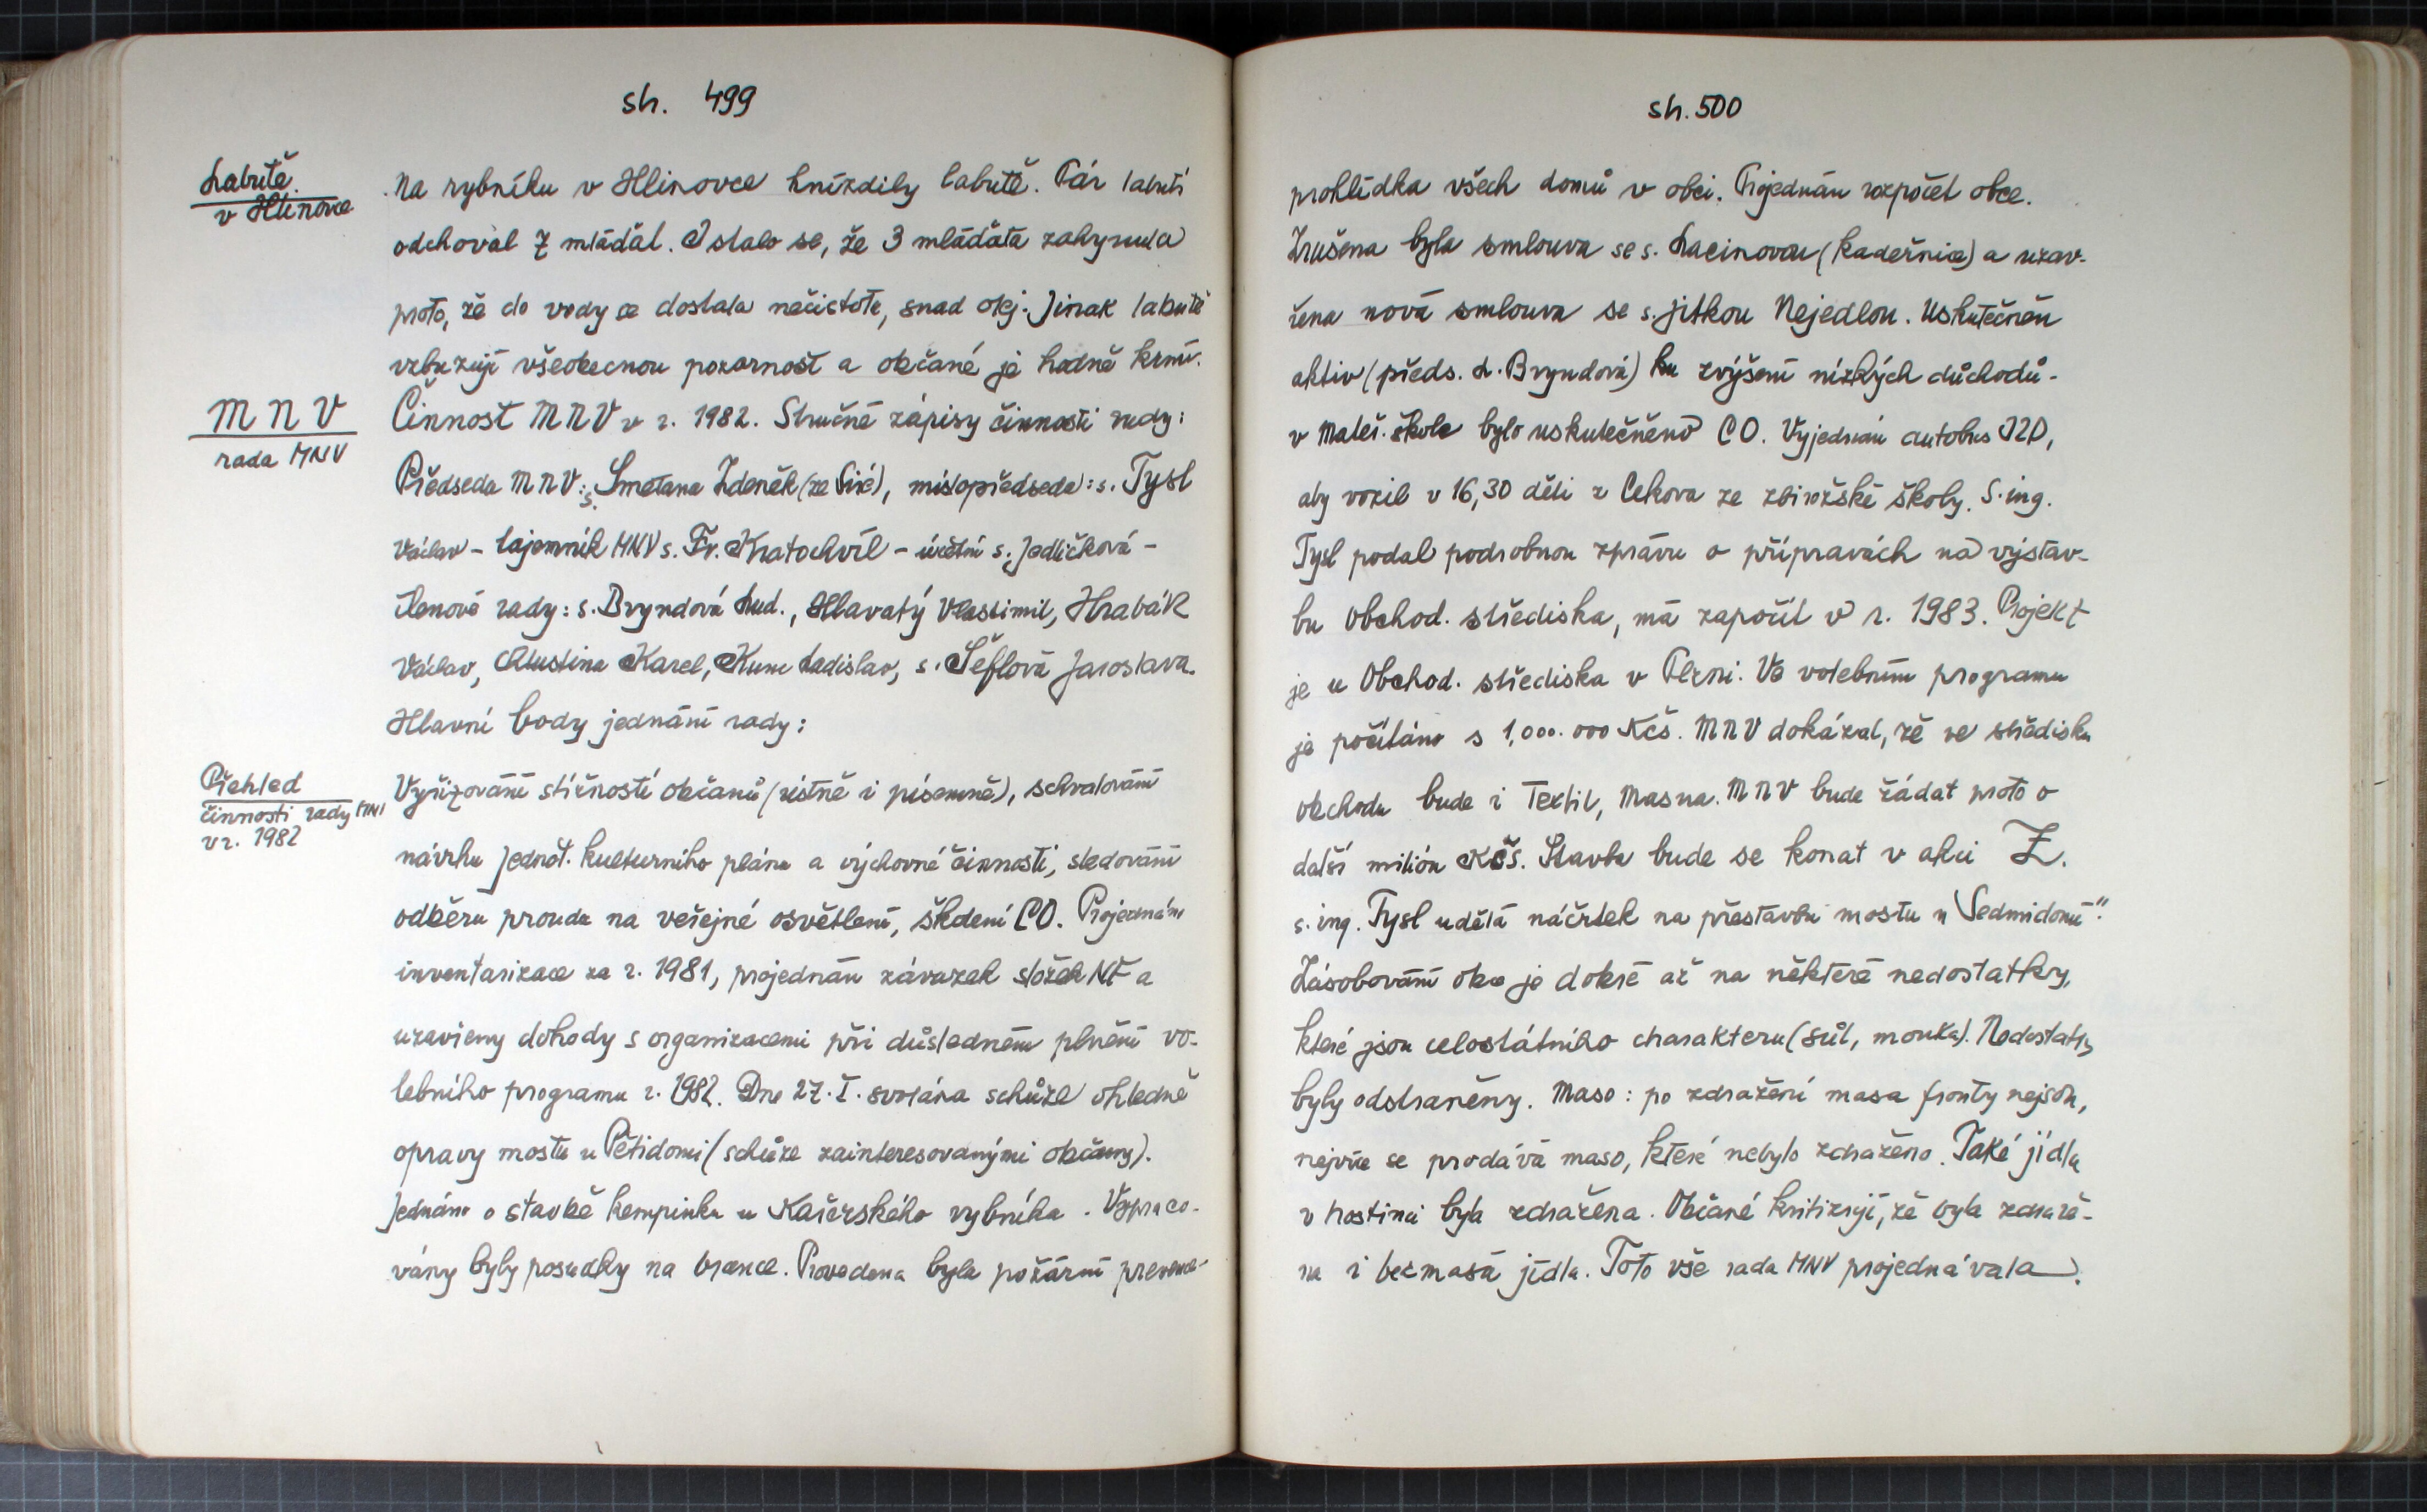 str. 499
Labutě
v Hlinovce
Na rybníku v Hlinovce hnízdily labutě. Pár labutí
odchoval 7 mláďat. I stalo se, že 3 mláďata zahynula
proto, že do vody se dostala nečistota, snad olej. Jinak labutě
vzbuzují všeobecnou pozornost a občané je hodně krmí.
M N V
rada MNV
Činnost MNV v r. 1982. Stručné zápisy činnosti rady:
Předseda MNV: s. Smetana Zdeněk (ze Siré), místopředseda: s. Tysl
Václav - tajemník MNV s. Fr. Kratochvíl - účetní s. Jedličková -
členové rady: s. Bryndová Lud., Hlavatý Vlastimil, Hrabák
Václav, Karel, Kunc Ladislav, s. Šeflová Jaroslava.
Hlavní body jednání rady:
Přehled
činnosti rady MNV
v r. 1982
Vyřizování stížností občanů (ústně i písemně), schvalování
návrhu jednot. kulturního plánu a výchovné činnosti, sledování
odběru proudu na veřejné osvětlení, školení CO. Projednání
inventarizace za r. 1981, projednán závazek složek NF a
uzavřeny dohody s organizacemi při důsledném plnění vo-
lebního programu r. 1982. Dne 27. I. svolána schůze ohledně
opravy mostu u Pětidomí (schůze zainteresovanými občany).
Jednáno o stavbě kempinku u Kařezského rybníka. Vypraco-
vány byly posudky na brance. Provedena byla požární preven.-
str. 500
prohlídka všech domů v obci. Projednán rozpočet obce.
Zrušena byla smlouva se s. Lacinovou (kadeřnice) a uzav-
řena nová smlouva se s. Jitkou Nejedlou. Uskutečněn
aktiv (předs. L. Bryndová) ku zvýšení nízkých důchodů -
v Mateř. škole bylo uskutečněno CO. Vyjednán autobus JZD,
aby vozil v 16,30 děti z Cekova ze zbirožské školy. S. ing.
Tysl podal podrobnou zprávu o přípravách na výstav-
bu Obchod. střediska, má započít v r. 1983. Projekt
je u Obchod. střediska v Plzni. Ve volebním programu
je počítáno s 1,000.000 Kčs. MNV dokázal, že ve středisku
obchodu bude i Textil, Masna. MNV bude žádat proto o
další milión Kčs. Stavba bude se konat v akci Z.
s. ing. Tysl udělá náčrtek na přestavbu mostu u "Sedmidomí".
Zásobování obce je dobré až na některé nedostatky,
které jsou celostátního charakteru (sůl, mouka). Nedostatky
byly odstraněny. Maso: po zdražení masa fronty nejsou,
nejvíce se prodává maso, které nebylo zdraženo. Také jídla
v hostinci byla zdražena. Občané kritizují, že byla zdraže-
na i bezmasá jídla. Toto vše rada MNV projednávala.